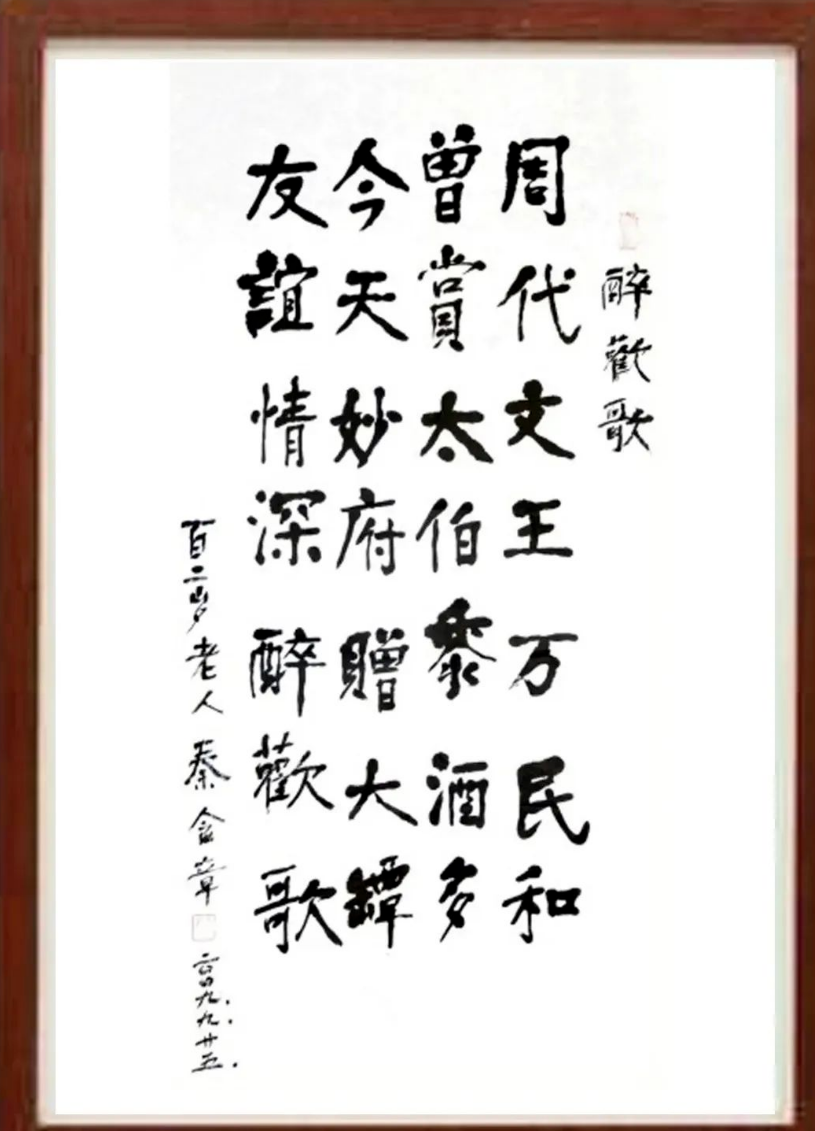 醉歡歌
周代文王万民和
曾賞太伯黍酒多
今天妙府贈大罈
友誼情深醉歡歌
百二岁老人秦含章
二〇〇九.九.廿五.